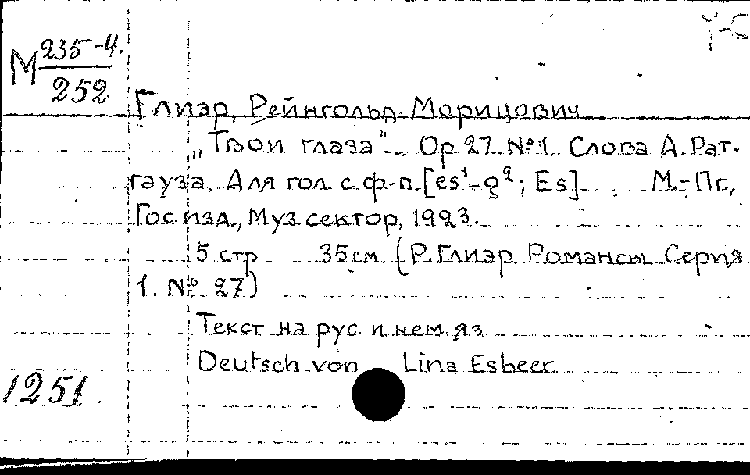 М 235-4.
252
Глиэр, Рейнгольд Морицович
„Твои глаза". Op 27. №1. Слова А. Рат-
гауза. Для гол. с ф-п. [es¹-g²; Es]. М.-Пг.,
Гос. изд., Муз сектор, 1923.
5 стр 35 см (Р. Глиэр Романсы. Серия
1. № 27)
Текст на рус. и нем яз
Deutsch von Lina Esbeer
1251.